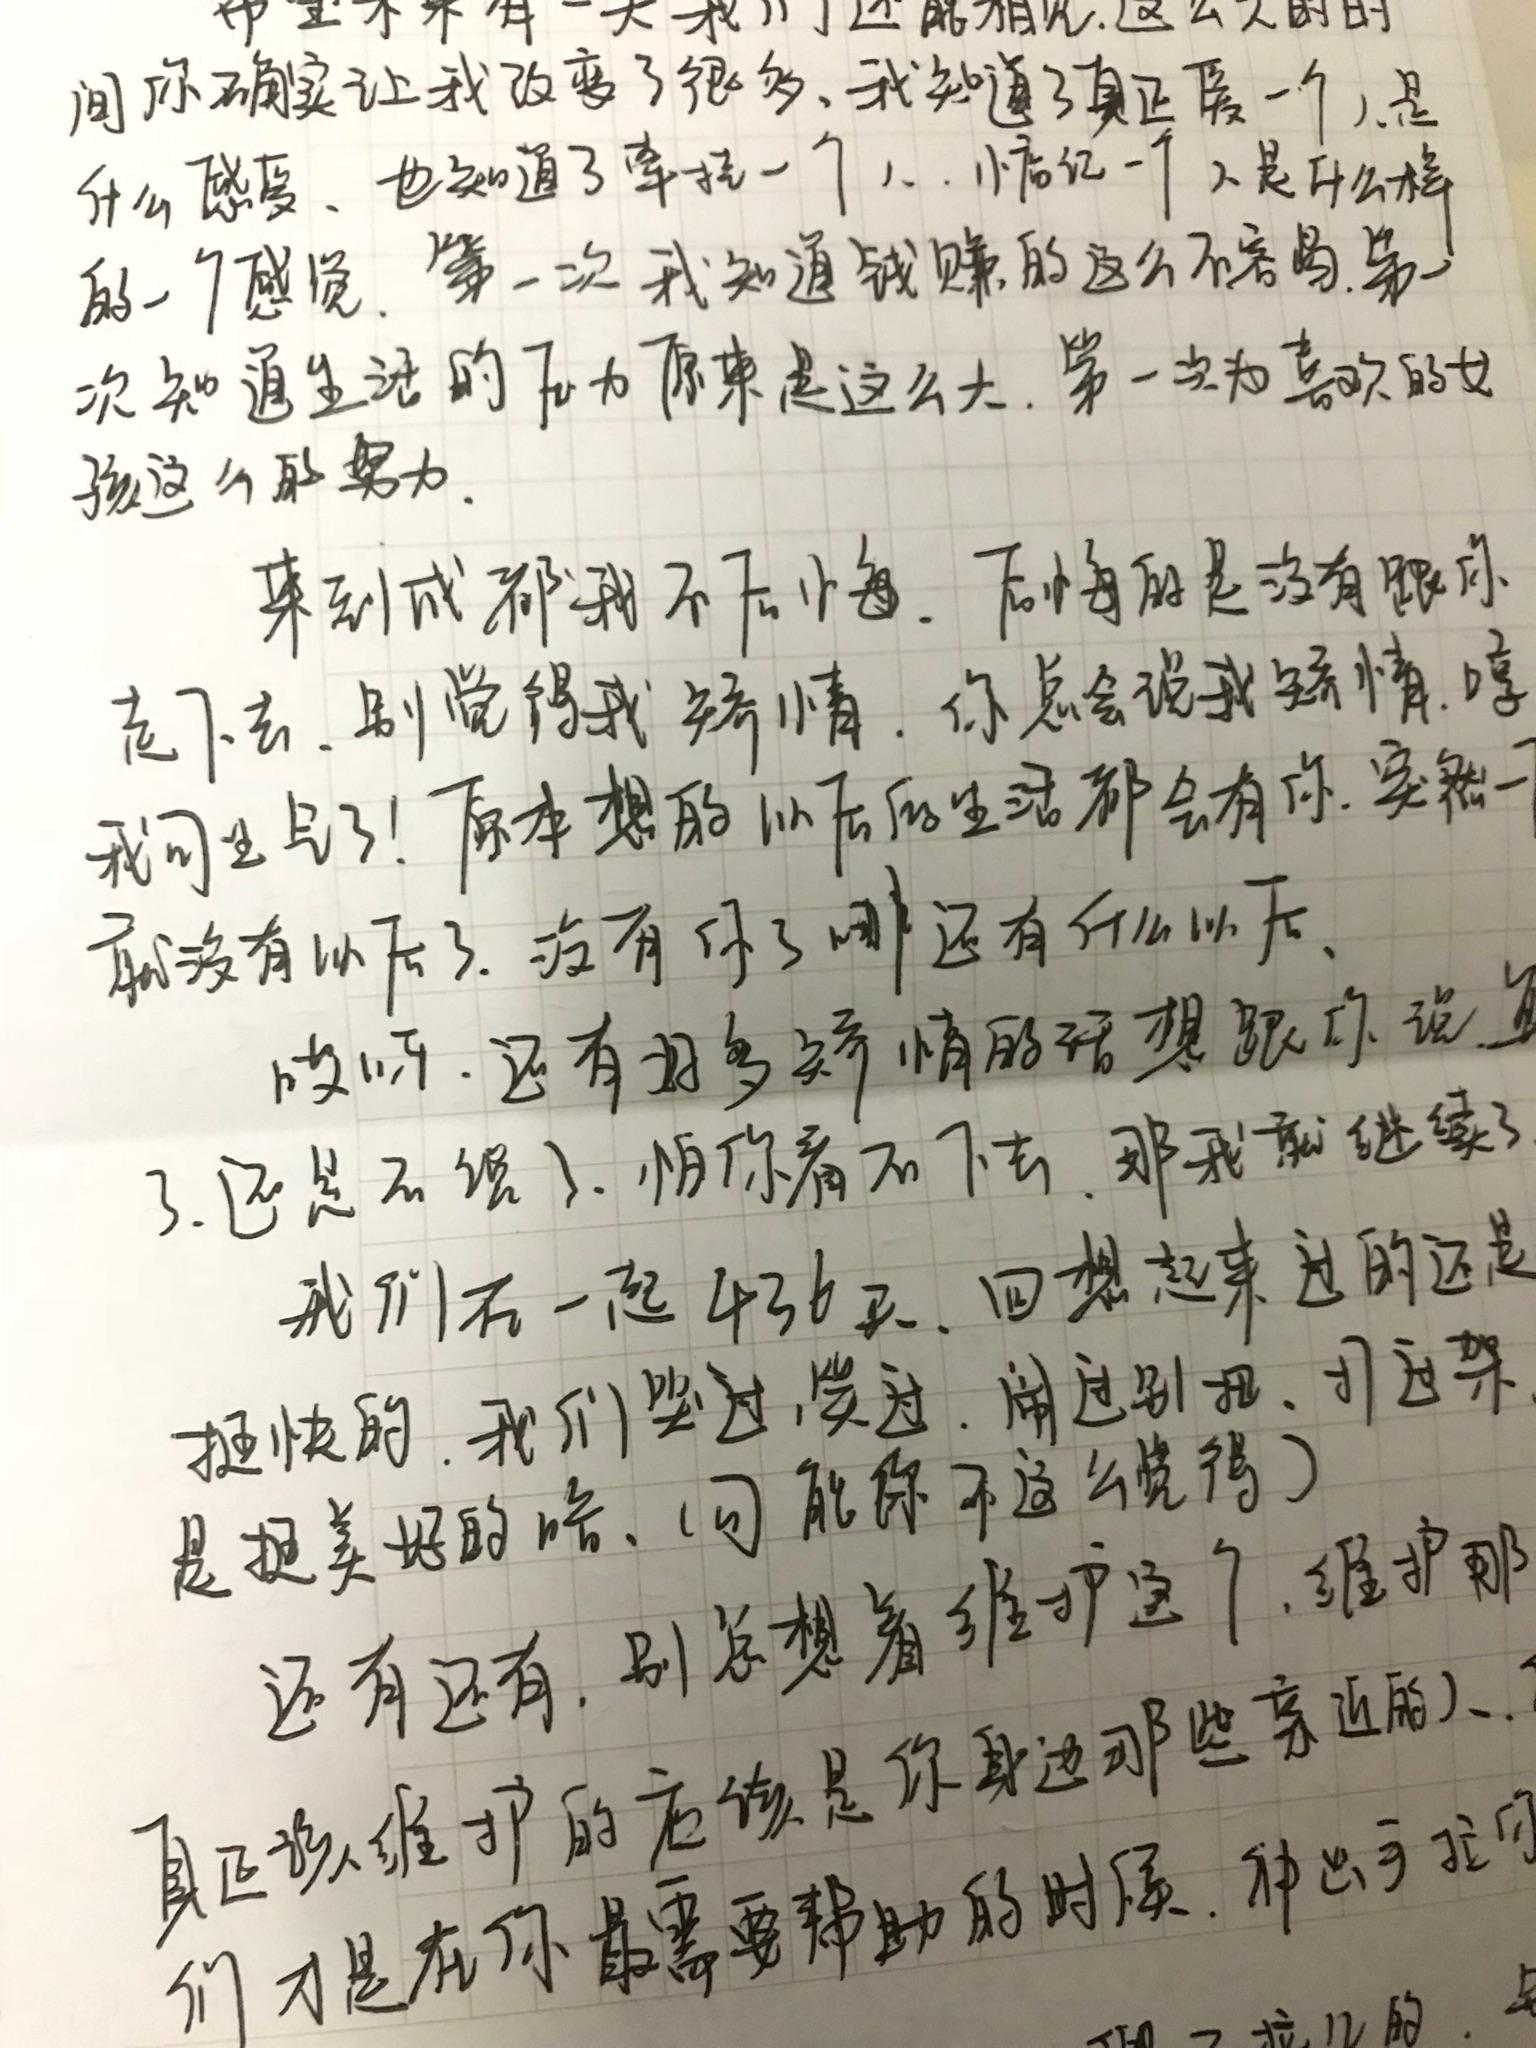 希望未来有一天我们还能相见.这么久的时
间你确实让我改变了很多、我知道了真正爱一个人是
什么感受、也知道了牵挂一个人..惦记一个人是什么样
的一个感觉.第一次我知道钱赚的这么不容易.第一
次知道生活的压力原来是这么大.第一次为喜欢的女
孩这么的努力.
来到成都我不后悔.后悔的是没有跟你
走下去、别觉得我矫情.你总会说我矫情.哼
我可生气了!原本想的以后的生活都会有你.突然一下
就没有以后了.没有你了哪还有什么以后、
哎呀.还有好多矫情的话想跟你说.
了.还是不继了.怕你看不下去.那我就继续了.
我们在一起436天、回想起来过的还是
挺快的.我们哭过,笑过.闹过别扭、打过架.
是挺美好的哈、(可能你不这么觉得)
还有还有.别总想着维护这个.维护那
真正该维护的应该是你身边那些亲近的人.
们才是在你最需要帮助的时候.伸出手拉你
的.